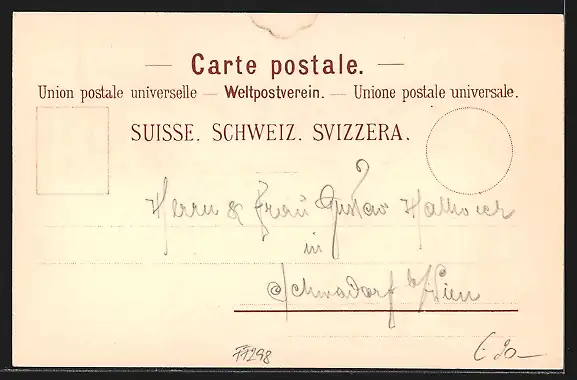 — Carte postale. —
Union postale universelle — Weltpostverein. — Unione postale universale.
SUISSE. SCHWEIZ. SVIZZERA.
Herrn & Frau Gustav
in
Schwadorf b/Wien
11298
€ 20–